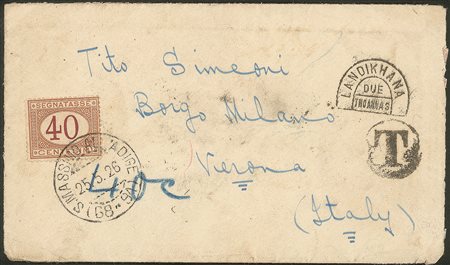 Tito Simeoni
Borgo Milano
Verona
(Italy)
SEGNATASSE
40
CENT
LANDIKHANA
DUE
TWO ANNAS
T
S. MASSIMO ALL'ADIGE
25.5.26
40c